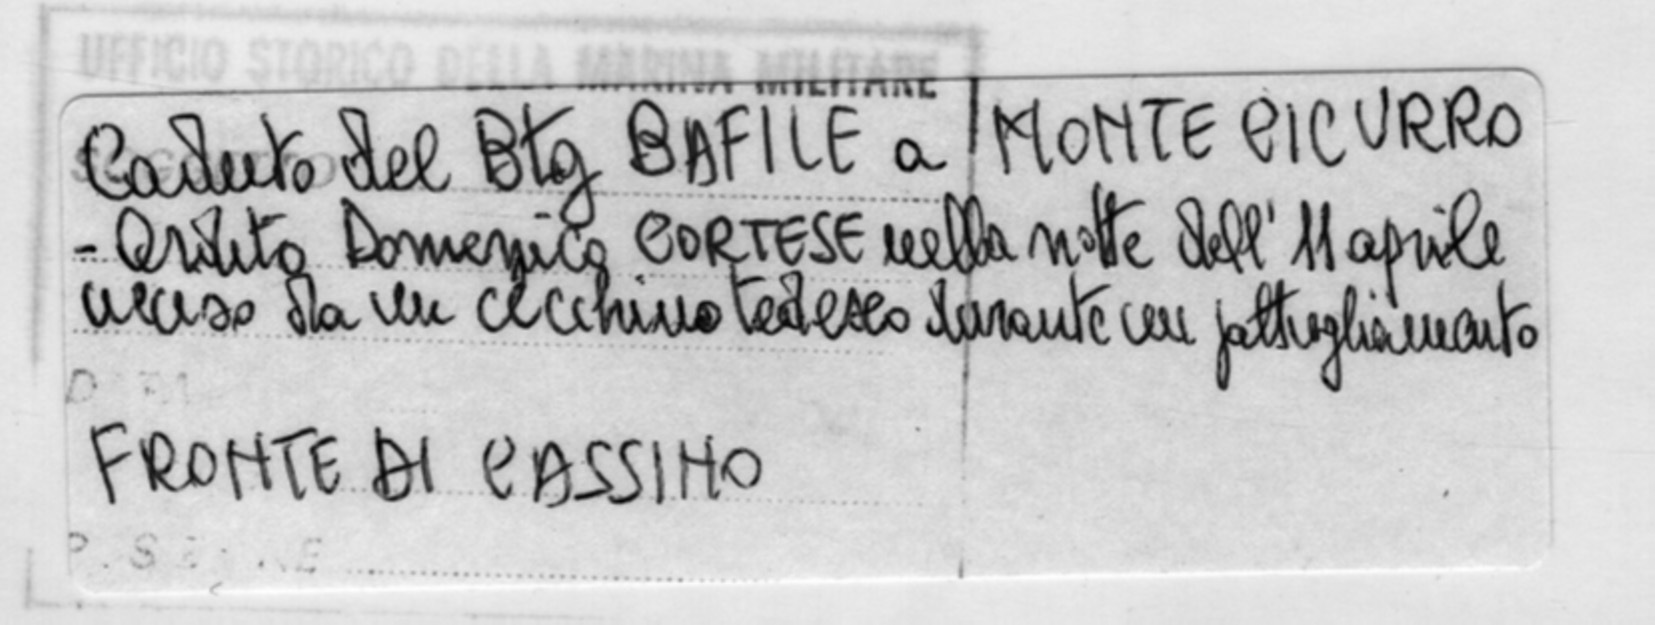 UFFICIO STORICO DELLA MARINA MILITARE
Caduto del Btg BAFILE a MONTE CICURRO
- Ardito Domenico CORTESE nella notte dell'11 aprile
ucciso da un cecchino tedesco durante un pattugliamento
FRONTE DI CASSINO